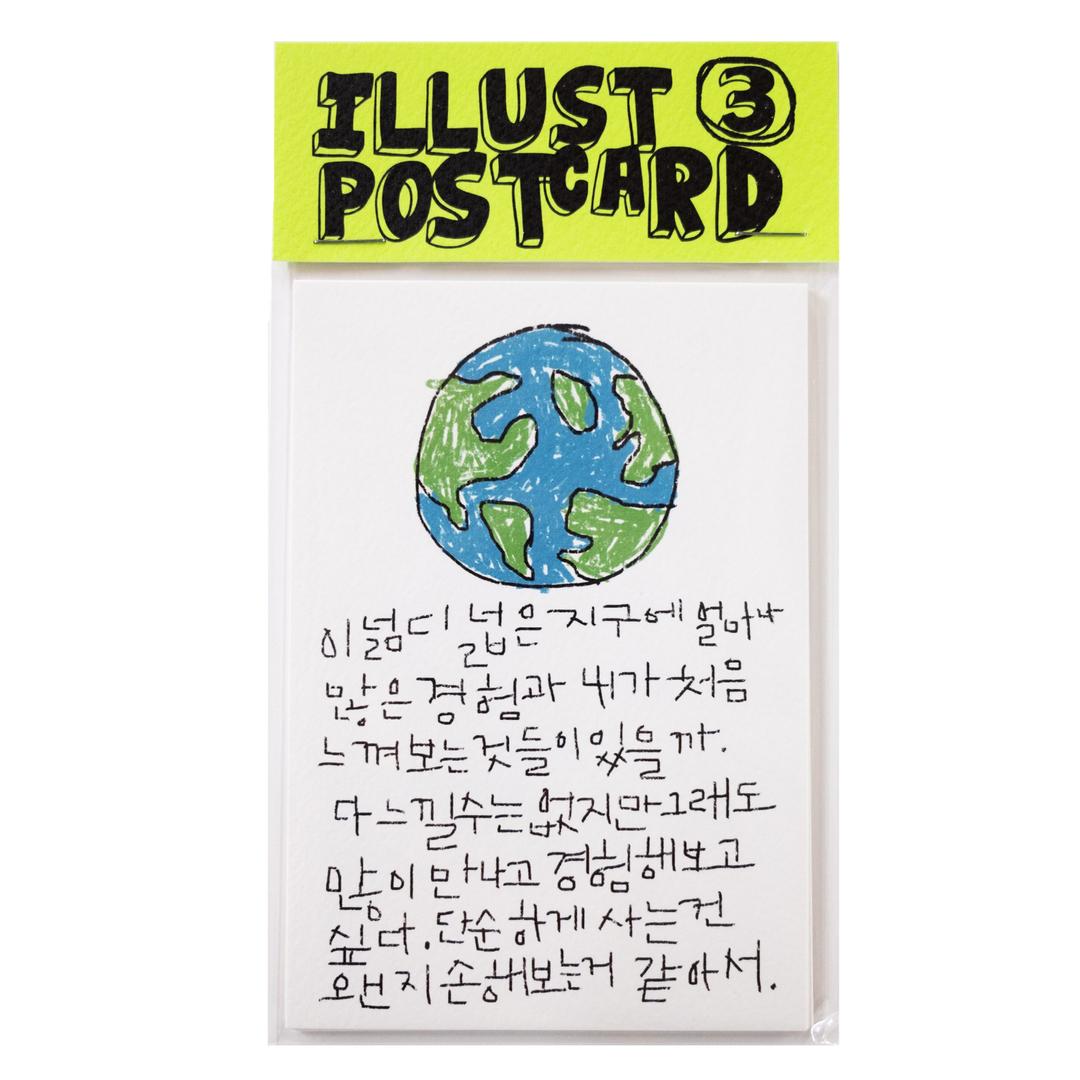 ILLUST ③
POSTCARD
이 넒디 넓은 지구에 얼마나
많은 경험과 내가 처음
느껴보는 것들이 있을까.
다 느낄수는 없지만 그래도
많이 만나고 경험해보고
싶다. 단순하게 사는건
왠지 손해보는거 같아서.